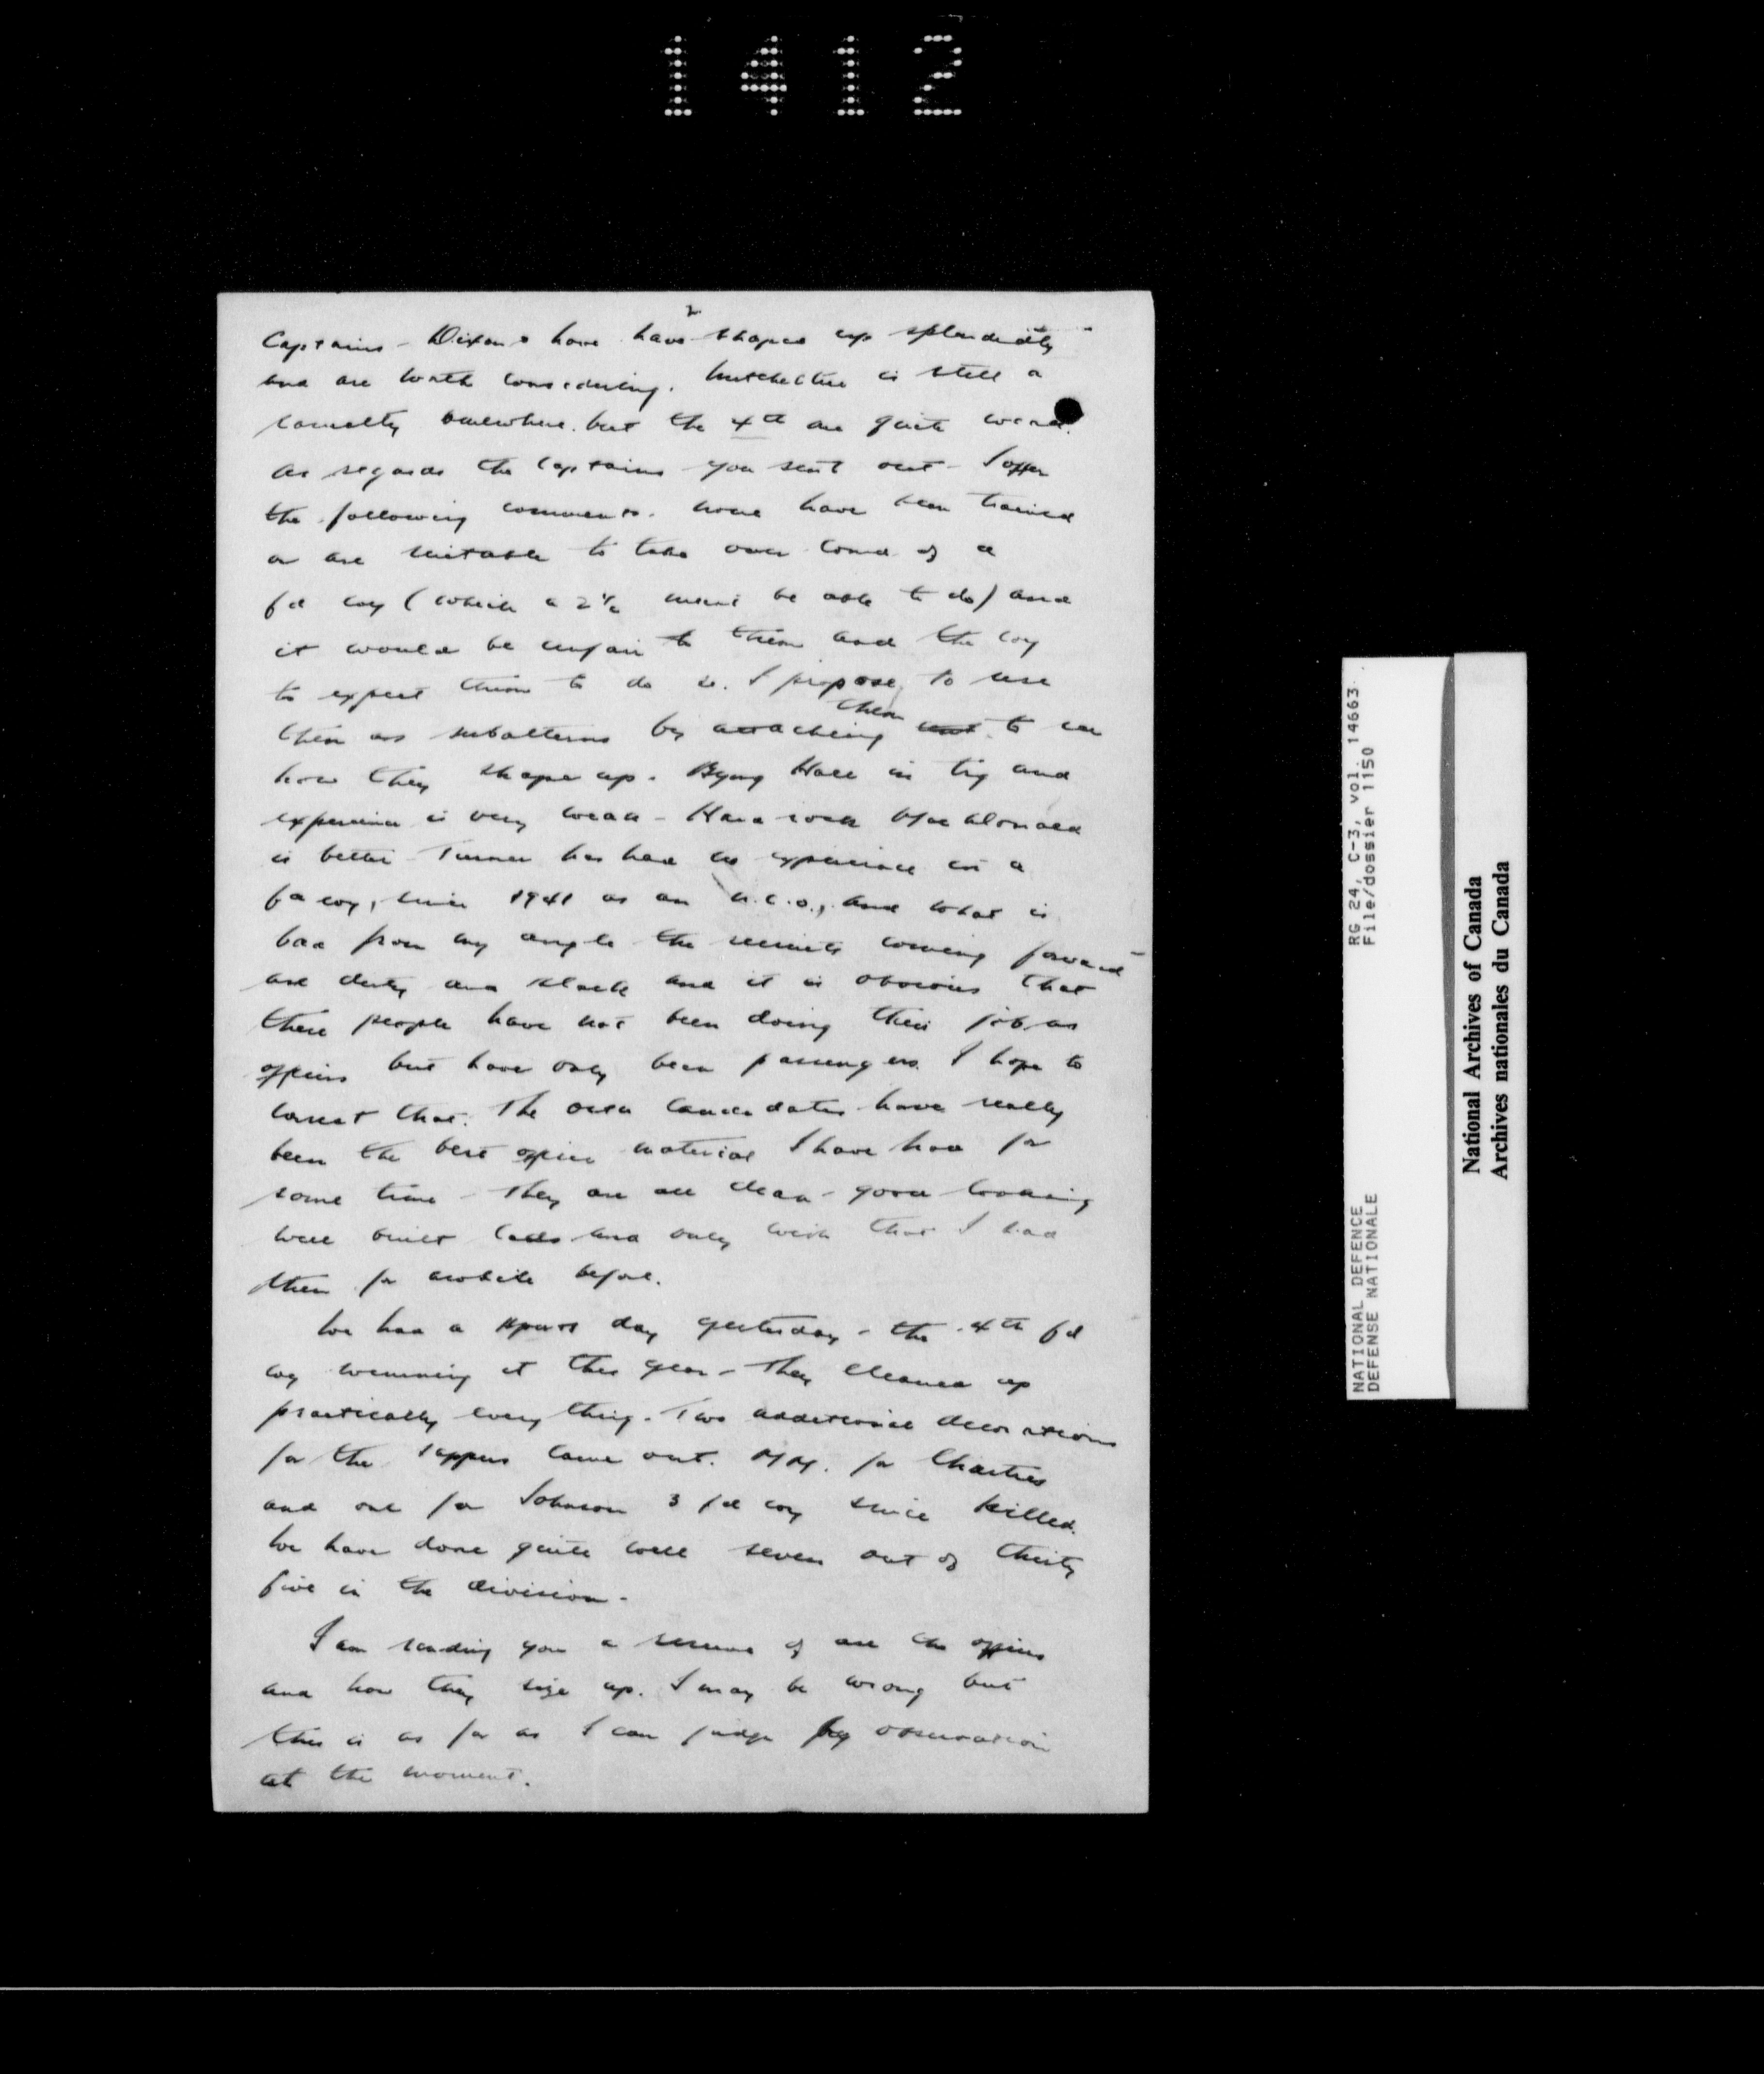 1412
2
Captains - Dixon & have have shaped up splendidly
and are worth considering. is still a
casualty somewhere. but the 4th are quite weak.
As regards the Captains you sent out - I offer
the following comments. None have been trained
or are suitable to take over comd of a
fd coy (which a 2 i/c must be able to do) and
it would be unfair to them and the coy
to expect them to do so. I propose to use
them as subalterns by attaching them to see
how they shape up. Byng Hall in trg and
experience is very weak - Hard rock MacDonald
is better Turner has had no experience in a
fd coy, since 1941 as an N.C.O., and what is
bad from my angle the recruits coming forward
are dirty and slack and it is obvious that
these people have not been doing their job as
officers but have only been passengers. I hope to
correct that. The candidates have really
been the best officer material I have had for
some time - They are all clean - good looking
well built lads and only wish that I had
them for awhile before.
We had a sports day yesterday - the 4th fd
coy winning it this year - They cleaned up
practically every thing. Two additional decorations
for the sappers came out. MM. for
and one for Johnson 3 fd coy since killed.
We have done quite well seven out of thirty
five in the division.
I am sending you a resume of all the officers
and how they size up. I may be wrong but
this is as far as I can judge by observation
at the moment.
RG 24, C-3, vol. 14663
File/dossier 1150
NATIONAL DEFENCE
DEFENSE NATIONALE
National Archives of Canada
Archives nationales du Canada